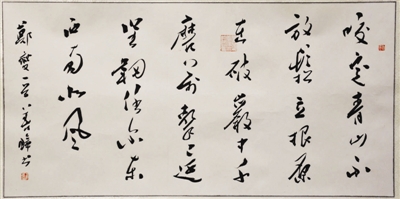 咬定青山不
放鬆立根原
在破巖中千
磨萬擊還
堅韌任尔东
西南北風
鄭燮一首